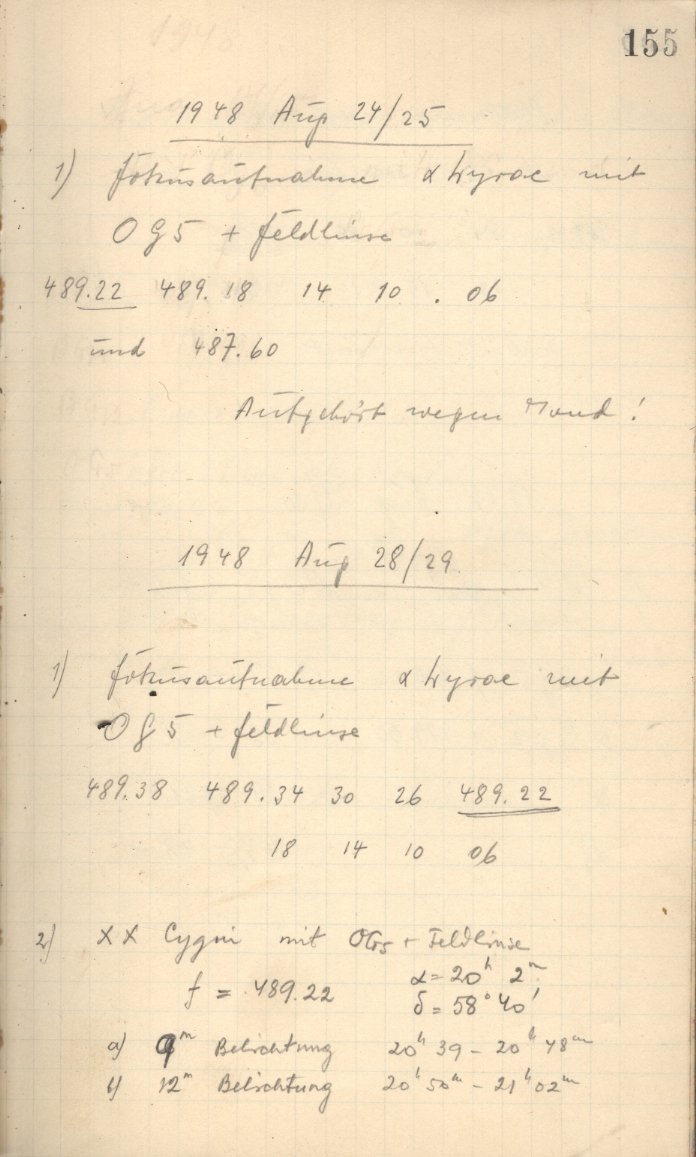 155
1948 Aug 24/25
1) Fokusaufnahme α Lyrae mit
OG5 + Feldlinse
489.22 489.18 14 10 . 06
und 487.60
Aufgehört wegen Mond!
1948 Aug 28/29
1) Fokusaufnahme α Lyrae mit
OG5 + Feldlinse
489.38 489.34 30 26 489.22
18 14 10 06
2) XX Cygni mit OG5 + Feldlinse
f = 489.22 α = 20ʰ 2ᵐ
δ = 58° 40'
a) 9ᵐ Belichtung 20ʰ 39 - 20ʰ 48ᵐ
b) 12ᵐ Belichtung 20ʰ 50ᵐ - 21ʰ 02ᵐ